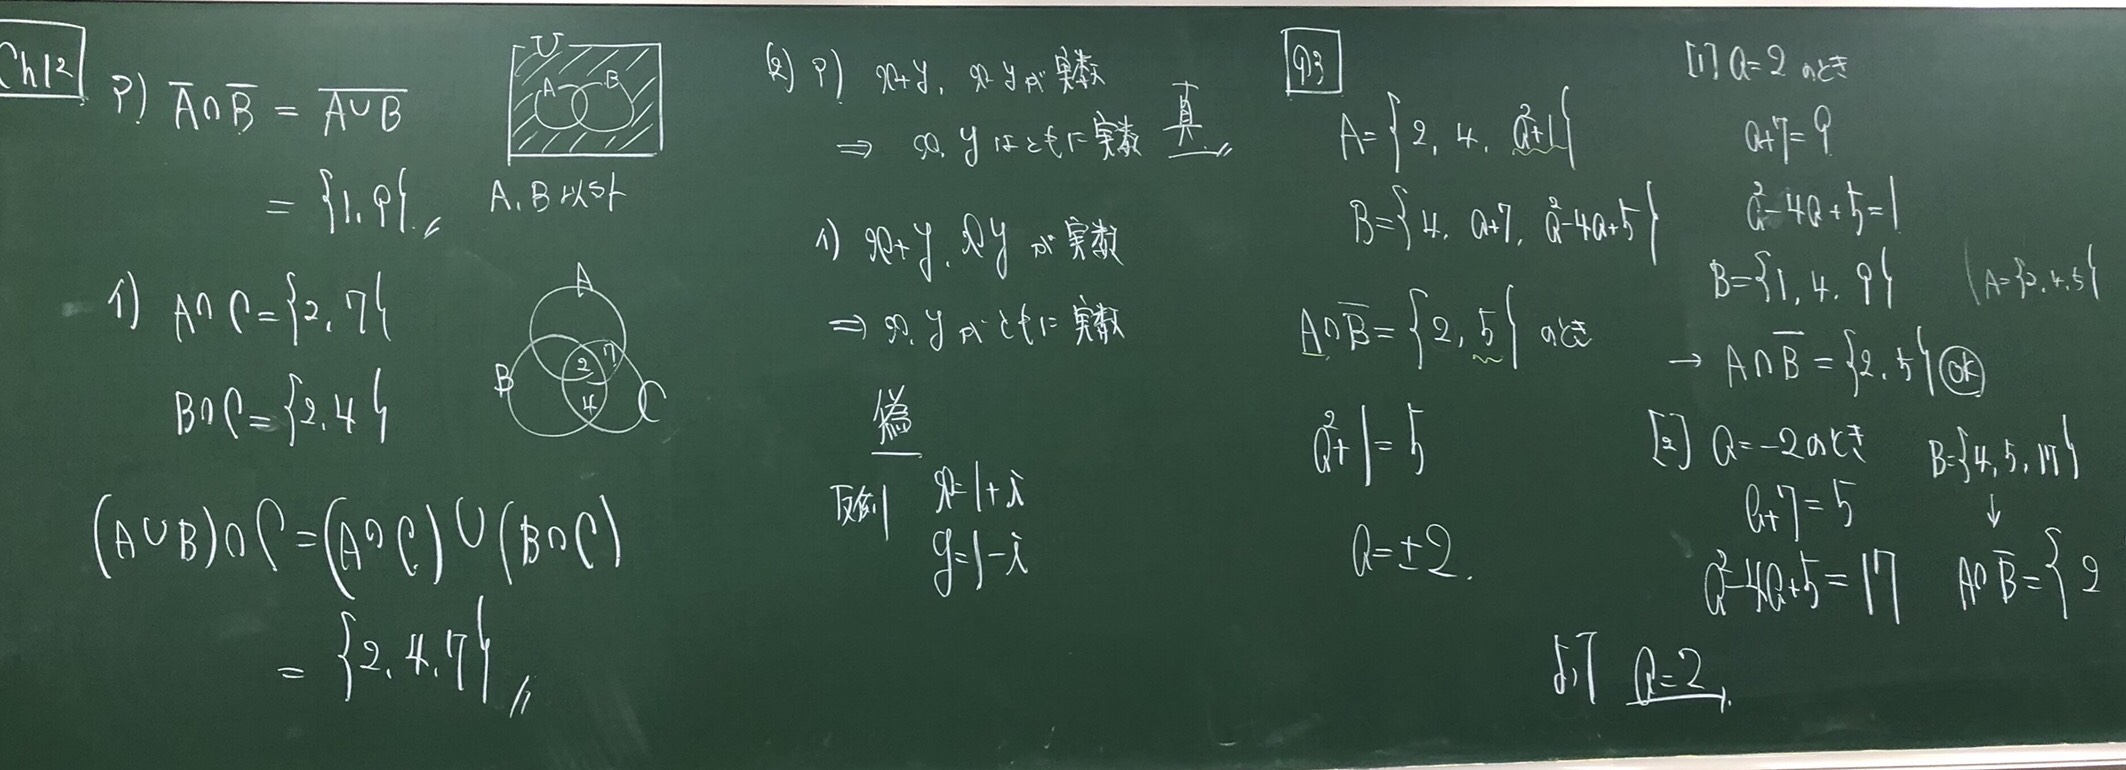 Ch12
ア) A̅∩B̅ = \overline{A∪B}
= {1, 9}
U
A B
A, B 以外
イ) A∩C={2, 7}
B∩C={2, 4}
A
B 2 7 C
4
(A∪B)∩C=(A∩C)∪(B∩C)
= {2, 4, 7}
(2) ア) x+y, x-yが実数
⇒ x, yはともに実数 真
イ) x+y, xy が実数
⇒ x, yがともに実数
偽
反例 x=1+i
y=1-i
Q3
A={2, 4, a²+1}
B={4, a+7, a²-4a+5}
A∩B̅={2, 5} のとき
a²+1=5
a=±2.
[1] a=2 のとき
a+7=9
a²-4a+5=1
B={1, 4, 9} (A={2, 4, 5}
→ A∩B̅={2, 5} OK
[2] a=-2のとき B={4, 5, 17}
a+7=5 ↓
a²-4a+5=17 A∩B̅={2
よって a=2